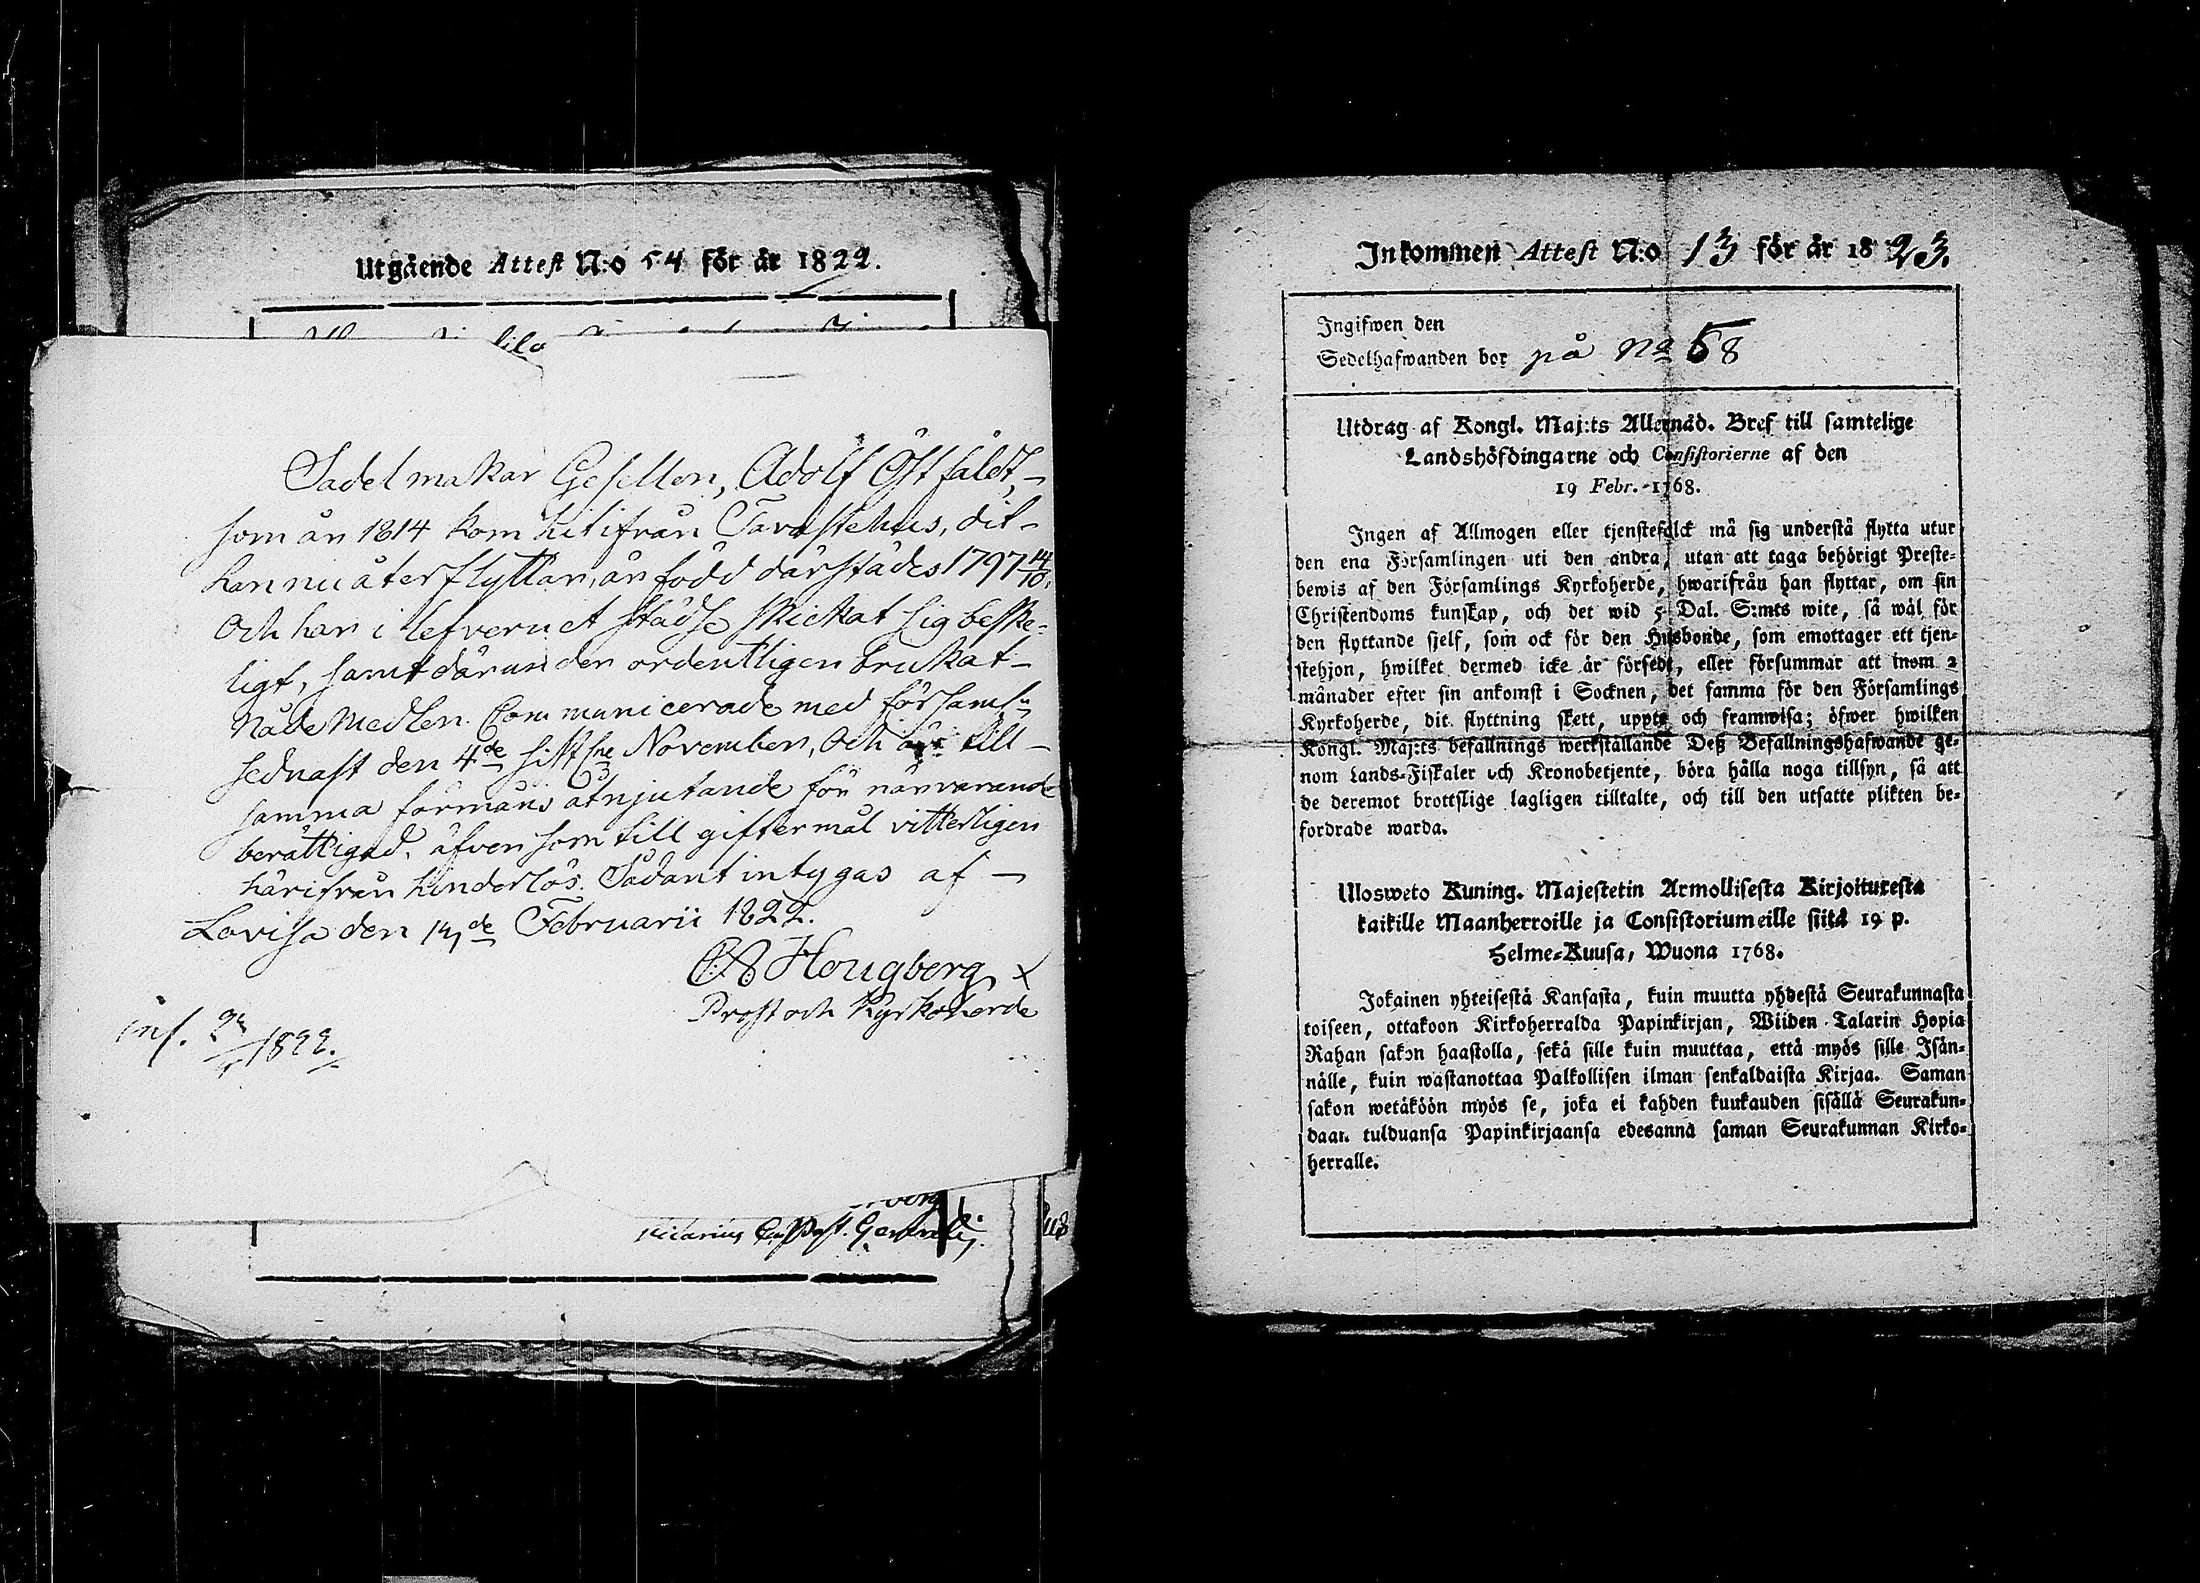 Utgående Attest N:o 54 för år 1822.
Sadelmakar Gesellen, Adolf Östfäldt,
som år 1814 kom hitifrån Tavastehus, dit-
han nu återflyttar, är född därstädes 1797 14/10,
Och har i lefvernet städse skickat sig beske-
ligt, samt därunder ordentligen brukat
Nådemedlen. Communicerade med församl:n
sednast den 4de sistl:ne November, Och är till
samma förmåns åtnjutande för närvarande
berättigad, äfven som till giftermål vitterligen
härifrån hinderlös. Sådant intygas af
Lovisa den 14de Februarii 1822.
Hougberg
Prost och Kyrkoherde
inf. 1822.
Vicarius Past. Gener.
Inkommen Attest N:o 13 för år 1823.
Ingifwen den
Sedelhafwanden bor på No 58
Utdrag af Kongl. Maj:ts Allernåd. Bref till samtelige
Landshöfdingarne och Consistorierne af den
19 Febr. 1768.
Ingen af Allmogen eller tjenstefolck må sig understå flytta utur
den ena Församlingen uti den andra, utan att taga behörigt Preste-
bewis af den Församlings Kyrkoherde, hwarifrån han flyttar, om sin
Christendoms kunskap, och det wid 5 Dal. S:mts wite, så wäl för
den flyttande sjelf, som ock för den Husbonde, som emottager ett tjen-
stehjon, hwilket dermed icke är försedt, eller försummar att inom 2
månader efter sin ankomst i Socknen, det samma för den Församlings
Kyrkoherde, dit flyttning skett, uppte och framwisa; öfwer hwilken
Kongl. Maj:ts befallnings werkställande Deß Befallningshafwande ge-
nom Lands-Fiskaler och Kronobetjente, böra hålla noga tillsyn, så att
de deremot brottslige lagligen tilltalte, och till den utsatte plikten be-
fordrade warda.
Ulosweto Kuning. Majestetin Armollisesta Kirjoituresta
kaikille Maanherroille ja Consistoriumeille siitä 19 p.
Helme-Kuusa, Wuona 1768.
Jokainen yhteisestä Kansasta, kuin muutta yhdestä Seurakunnasta
toiseen, ottakoon Kirkoherralda Papinkirjan, Wiiden Talarin Hopia
Rahan sakon haastolla, sekä sille kuin muuttaa, että myös sille Isän-
nälle, kuin wastanottaa Palkollisen ilman senkaldaista Kirjaa. Saman
sakon wetäköön myös se, joka ei kahden kuukauden sisällä Seurakun-
daan tulduansa Papinkirjaansa edesannà saman Seurakunnan Kirko-
herralle.